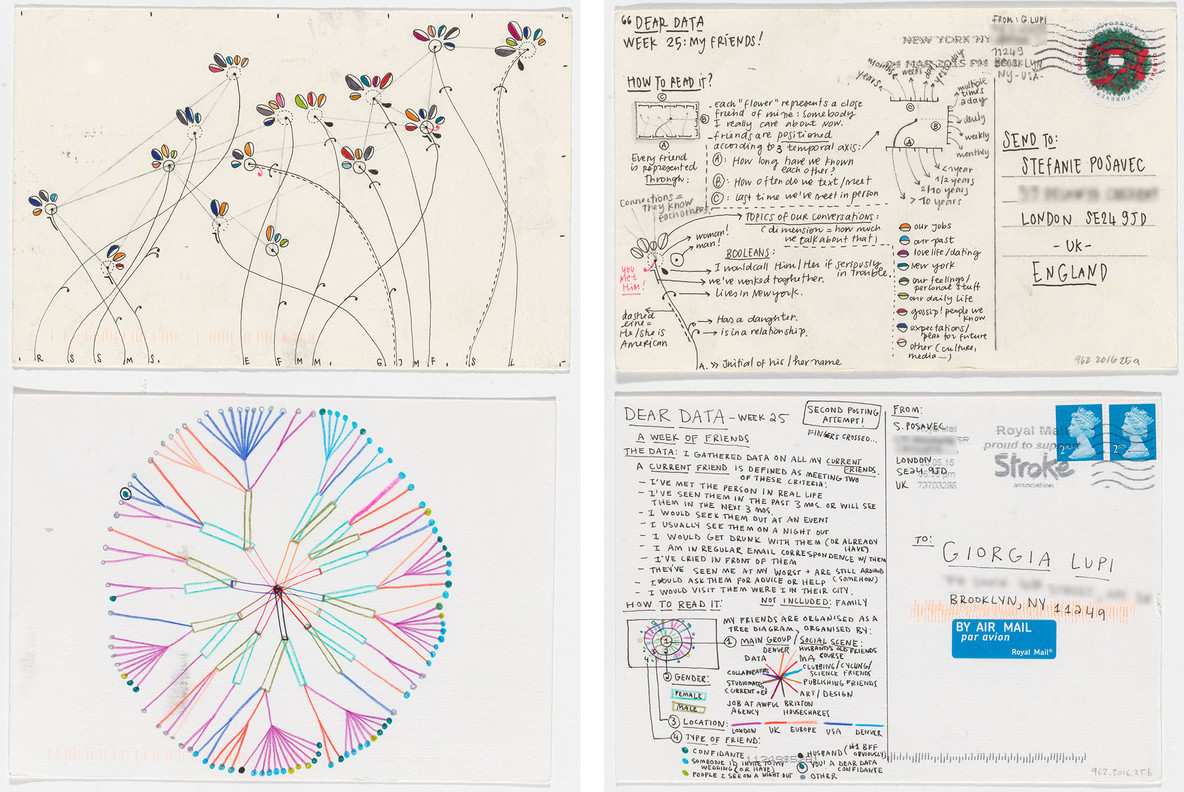 R S S M S. E F M M. G J M F. S L
"DEAR DATA
WEEK 25: MY FRIENDS!
HOW TO READ IT?
A
B
C
- each "flower" represents a close
friend of mine: somebody
I really care about now.
- friends are positioned
according to 3 temporal axis:
A: How long have we known
each other?
B: How often do we text/meet
C: last time we've meet in person
Every friend
is represented
Through:
Connections=
They know
each others
TOPICS OF OUR CONVERSATIONS:
(dimension = how much
we talk about that)
woman!
man!
BOOLEANS:
I would call Him/Her if seriously
in trouble.
we've worked toghether.
lives in New York.
you
met
Him!
dashed
line =
He/she is
American
Has a daughter.
is in a relationship.
A. >> Initial of his/her name
years
months
weeks
yesterday
multiple
times
a day
daily
weekly
monthly
C
B
A
<1 year
1/2 years
2/10 years
> 10 years
our jobs
our past
love life/dating
New York
our feelings/
personal stuff
our daily life
gossip! people we
know
expectations/
plan for future
other (culture,
media...)
FROM: G. LUPI
11249
BROOKLYN
NY-USA
NEW YORK NY
MAR 2015 PM
FOREVER
SEND TO:
STEFANIE POSAVEC
LONDON SE24 9JD
- UK -
ENGLAND
962.2016.25a
DEAR DATA - WEEK 25
SECOND POSTING
ATTEMPT!
FINGERS CROSSED...
A WEEK OF FRIENDS
THE DATA: I GATHERED DATA ON ALL MY CURRENT
FRIENDS.
A CURRENT FRIEND IS DEFINED AS MEETING TWO
OF THESE CRITERIA:
- I'VE MET THE PERSON IN REAL LIFE
- I'VE SEEN THEM IN THE PAST 3 MOS. OR WILL SEE
THEM IN THE NEXT 3 MOS.
- I WOULD SEEK THEM OUT AT AN EVENT
- I USUALLY SEE THEM ON A NIGHT OUT
- I WOULD GET DRUNK WITH THEM (OR ALREADY
HAVE)
- I AM IN REGULAR EMAIL CORRESPONDENCE W/ THEM
- I'VE CRIED IN FRONT OF THEM
- THEY'VE SEEN ME AT MY WORST + ARE STILL AROUND
- I WOULD ASK THEM FOR ADVICE OR HELP (SOMEHOW)
- I WOULD VISIT THEM WERE I IN THEIR CITY.
NOT INCLUDED: FAMILY
HOW TO READ IT:
MY FRIENDS ARE ORGANISED AS A
TREE DIAGRAM, ORGANISED BY:
1 MAIN GROUP/SOCIAL SCENE:
DENVER
HUSBANDS OLD FRIENDS
DATA
MA COURSE
CLUBBING/CYCLING/
SCIENCE FRIENDS
COLLABORATORS
PUBLISHING FRIENDS
STUDIOMATES,
CURRENT + EX
ART/DESIGN
JOB AT AWFUL
AGENCY
BRIXTON
HOUSESHARES
2 GENDER:
FEMALE
MALE
3 LOCATION:
LONDON UK EUROPE USA DENVER
4 TYPE OF FRIEND:
CONFIDANTE
SOMEONE I'D INVITE TO MY
WEDDING (OR HAVE)
PEOPLE I SEE ON A NIGHT OUT
HUSBAND (#1 BFF
OBVIOUSLY)
YOU! A DEAR DATA
CONFIDANTE
OTHER
FROM:
S. POSAVEC
LONDON
SE24 9JD
UK
Royal Mail
proud to support
Stroke
association
TO:
GIORGIA LUPI
BROOKLYN, NY 11249
BY AIR MAIL
par avion
Royal Mail®
962.2016.25b